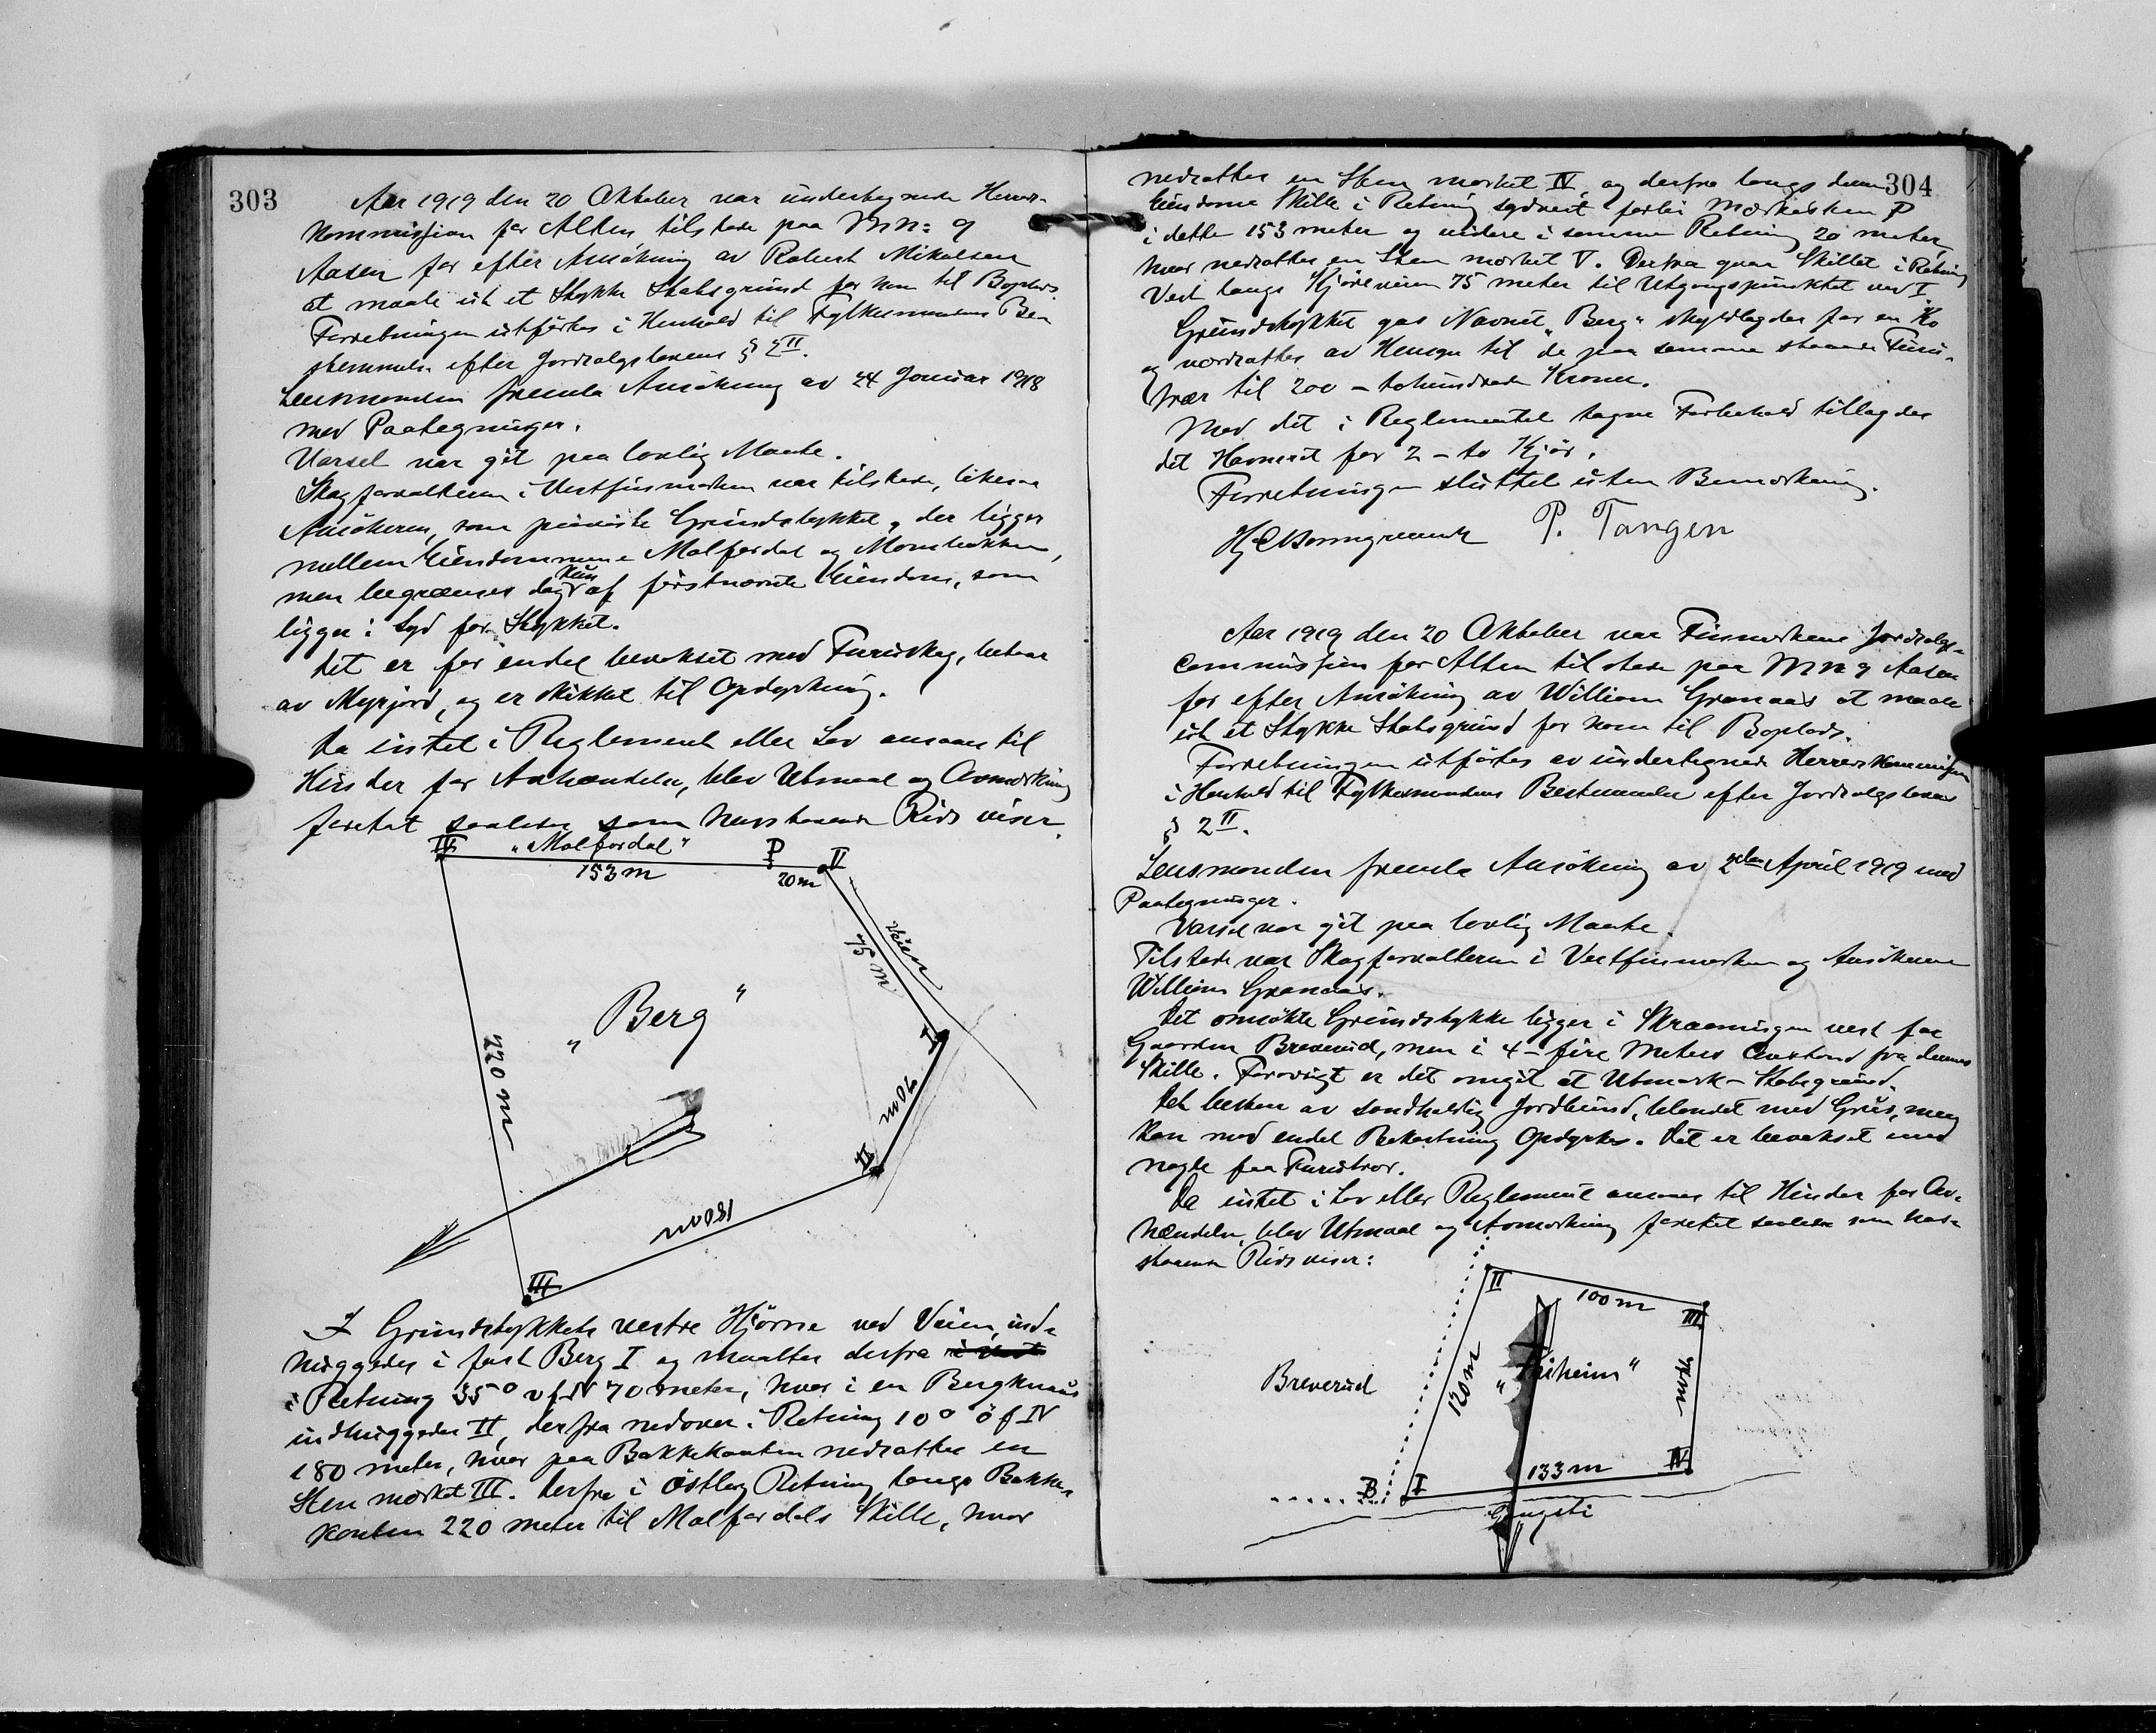 303
Aar 1919 den 20 Oktober var undertegnede Herreds-
kommission for Alten tilstede paa M n: 9
Aasen for efter Ansökning av Robert Mikalsen
at maale ut et Stykke Statsgrund for ham til Boplads.
Forretningen utförtes i Henhold til Fylkesmandens Be-
stemmelse efter Jordsalgslovens § 2 II.
Lensmanden fremla Ansökning av 24 Januar 1918
med Paategninger.
Varsel var git paa lovlig Maate.
Skogforvalteren i Vestfinmarken var tilstede, likesaa
Ansökeren, som paaviste Grundstykket, der ligger
mellem Eiendommene Malfordal og
men begrænses dog kun af förstnævnte Eiendom, som
ligger i Syd for Stykket.
Det er for endel bevokset med Furuskog, bestaar
av Myrjord, og er skikket til Opdyrkning.
Da intet i Reglement eller Lov ansaaes til
Hinder for Avhændelse, blev Utmaal og Avmerkning
foretat saaledes som hosstaaende Rids viser.
IV "Malfordal" P V
153 m 20 m
Veien
75 m
"Berg"
I
220 m
70 m
II
180 m
III
I Grundstykkets vestre Hjörne ved Veien, ind-
huggedes i fast Berg I og maaltes derfra
i Retning 35° v f N 70 meter, hvor i en Bergknaus
indhuggedes II, derfra nedover i Retning 10° ö f N
180 meter, hvor paa Bakkekanten nedsattes en
Sten merket III. Derfra i Östlig Retning langs Bakke-
kanten 220 meter til Malfordals Skille, hvor
304
nedsattes en Sten merket IV, og derfra langs denne
Eiendoms Skille i Retning sydvest forbi Merkesten P
i dette 153 meter og videre i samme Retning 20 meter,
hvor nedsattes en Sten merket V. Derfra gaar Skillet i Retning
Vest langs Kjöreveien 75 meter til Utgangspunktet ved I.
Grundstykket gas Navnet "Berg" skyldlagdes for en Ko
og værdsattes av Hensyn til de paa samme staaende Furu-
trær til 200 – tohundrede Kroner.
Med det i Reglementet tagne Forbehold tillagdes
det Havneret for 2 – to Kjör.
Forretningen sluttet uten Bemerkning.
P. Tangen
Aar 1919 den 20 Oktober var Finmarkens Jordsalgs-
commission for Alten tilstede paa M n 9 Aasen
for efter Ansökning av William Granaas at maale
ut et Stykke Statsgrund for ham til Boplads.
Forretningen utförtes av undertegnede Herredskommission
i Henhold til Fylkesmandens Bestemmelse efter Jordsalgslovens
§ 2 II.
Lensmanden fremla Ansökning av April 1919 med
Paategninger.
Varsel var git paa lovlig Maate.
Tilstede var Skogforvalteren i Vestfinmarken og Ansökeren
William Granaas.
Det omsökte Grundstykke ligger i Skraaningen vest for
Gaarden Breverud, men i 4 – fire Meters Avstand fra dennes
Skille. Forövrigt er det omgit at Utmark – Statsgrund.
Det bestaar av sandholdig Jordbund, blandet med Grus, men
kan med endel Bekostning Opdyrkes. Det er bevokset med
nogle faa Furutrær.
Da intet i Lov eller Reglement ansaaes til Hinder for Av-
hændelse, blev Utmaal og Avmerkning foretat saaledes som hos-
staaende Rids viser:
II
100 m
III
Breverud
120 m
"
74 m
133 m
IV
B I
Gangsti